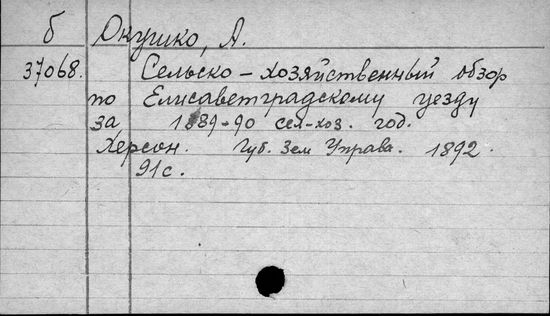 б Окушко, А.
37068. Сельско-хозяйственный обзор
по Елисаветградскому уезду
за 1889-90 сел-хоз. год.
Херсон. Губ. Зем Управа. 1892.
91с.